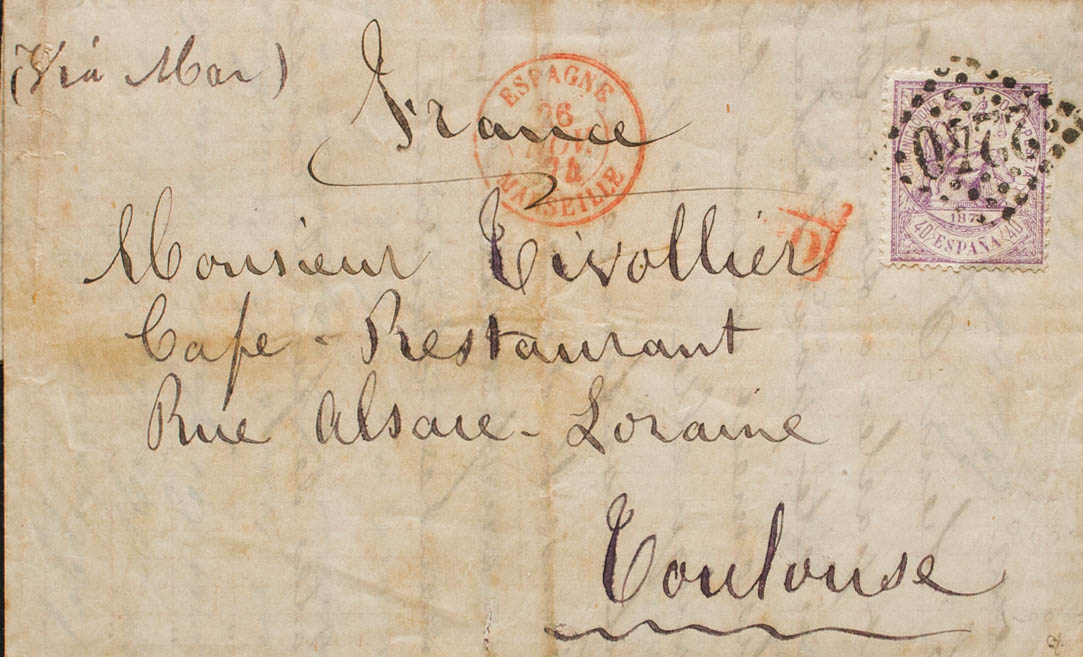 (Via Mar)
France
ESPAGNE
26
NOV.
74
MARSEILLE
PD
2240
1874
40 ESPAÑA 40
Monsieur Tivollier
Cafe - Restaurant
Rue Alsace - Loraine
Toulouse